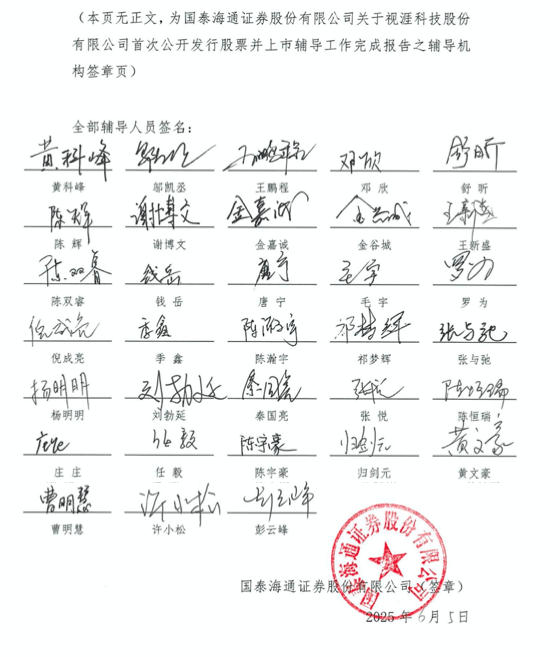 （本页无正文，为国泰海通证券股份有限公司关于视涯科技股份
有限公司首次公开发行股票并上市辅导工作完成报告之辅导机
构签章页）
全部辅导人员签名：
黄科峰 邬凯丞 王鹏程 邓欣 舒昕
黄科峰 邬凯丞 王鹏程 邓 欣 舒 昕
陈辉 谢博文 金嘉诚 金谷城 王新盛
陈 辉 谢博文 金嘉诚 金谷城 王新盛
陈双睿 钱岳 唐宁 毛宇 罗为
陈双睿 钱 岳 唐 宁 毛 宇 罗 为
倪成亮 李鑫 陈瀚宇 祁梦辉 张与弛
倪成亮 李 鑫 陈瀚宇 祁梦辉 张与弛
杨明明 刘勃延 秦国亮 张悦 陈恒瑞
杨明明 刘勃延 秦国亮 张 悦 陈恒瑞
庄庄 任毅 陈宇豪 归剑元 黄文豪
庄 庄 任 毅 陈宇豪 归剑元 黄文豪
曹明慧 许小松 彭云峰
曹明慧 许小松 彭云峰
国泰海通证券股份有限公司
国泰海通证券股份有限公司（签章）
2025年6月5日